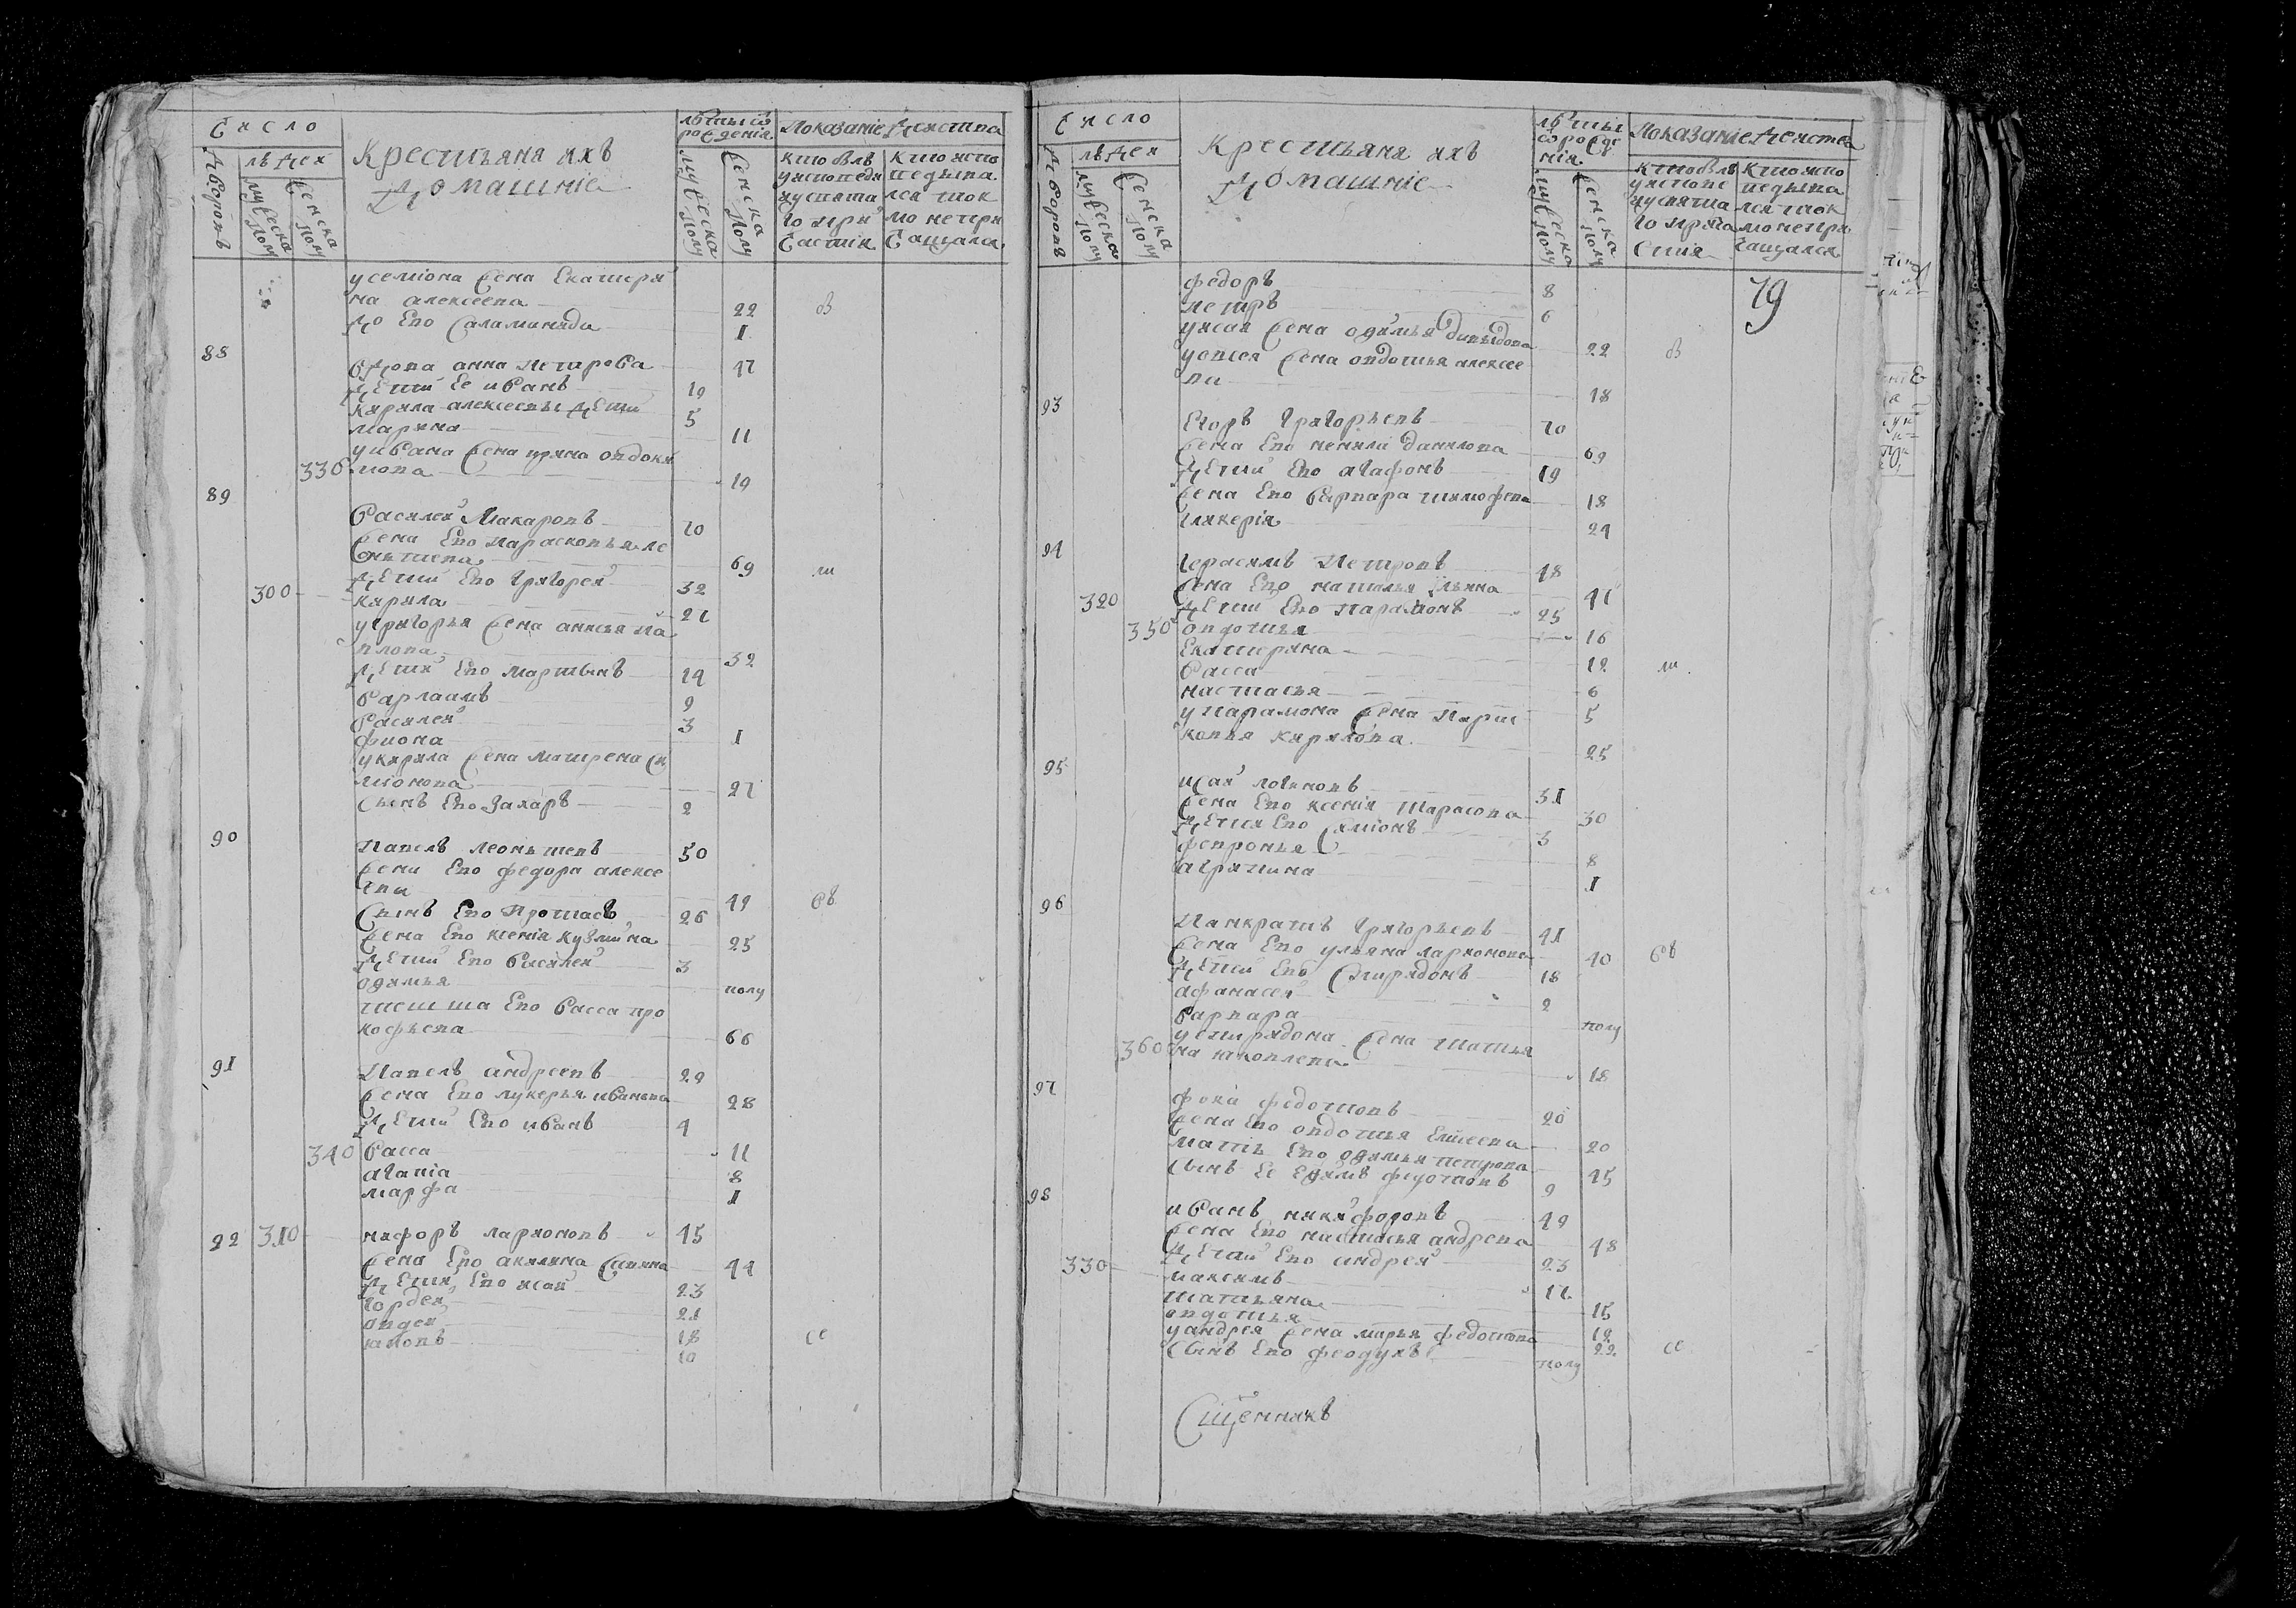 Число
Дворовъ
людей
мужеска полу
женска полу
крестьяня ихъ
домашніе
лѣты от рожденія
мужеска полу
женска полу
Показаніе действа
кто былъ у исповеди и у святаго причастія
кто исповедывался токмо не причащался
у семіона жена екатери
на алексеева 22 в
до его саламанида 1
88
вдова анна петрова 47
дети ее иванъ 19
кирила алексеевы дети 5
марина 11
у ивана жена ирина овдоки
330 мова 19
89
василей макаровъ 70
жена его парасковья ле
онтиева 69
300 дети его григорей 32
кирила 27
у григорья жена анисья па
влова 32
дети его мартынъ 14
варлаамъ 9
василей 3
фиона 1
у кирила жена матрена си
мионова 27
сынъ его захаръ 2
90
павелъ леонтиевъ 50
жена его федора алексе
евы 49
сынъ его протасъ 26
жена его ксенія кузмина 25
дети его василей 3
одимья полу
тиоша его васса про
кофьева 66
91
павелъ андреевъ 29
жена его лукерья иванова 28
дети его иванъ 4
340 васса 11
агапіа 8
марфа 1
92 310 никфоръ ларионовъ 45
жена его акилина савина 44
дети его исай 23
гордей 21
овдей 18
яковъ 10
Число
Дворовъ
людей
мужеска полу
женска полу
крестьяня ихъ
домашніе
лѣты от рожденія
мужеска полу
женска полу
Показаніе действа
кто былъ у исповеди и у святаго причастія
кто исповедывался токмо не причащался
79
федоръ 8
петръ 6
у исая жена одимья давыдова 22 в
у овдея жена овдотья алексее
ва 18
93
егоръ григорьевъ 70
жена его ненила данилова 69
дети его агафонъ 19
жена его варвара тимофева 18
гликерія 24
94
герасимъ петровъ 48
жена его наталья ильина 47
320 дети его парамонъ 25
350 овдотья 16
екатерина 12
васса 6
настасья 5
у парамона жена парас
ковья кирилова 25
95
исай логиновъ 31
жена его ксенія тарасова 30
дети его симіонъ 3
февронья 8
агрипина 1
96
панкратъ григорьевъ 41
жена его ульяна ларионова 40
дети его спиридонъ 18
афанасей 2
варвара полу
у спиридона жена татья
360 на яковлева 18
97
фока федотовъ 20
жена его овдотья елисеева 20
мать его одимья петрова 45
сынъ ее ефимъ федотовъ 9
98
иванъ никифоровъ 49
жена его настасья андреева 48
330 дети его андрей 23
максимъ 17
татьяна 15
овдотья 12
у андрея жена марья федотова 22
сынъ его феодулъ полу
Сщенникъ